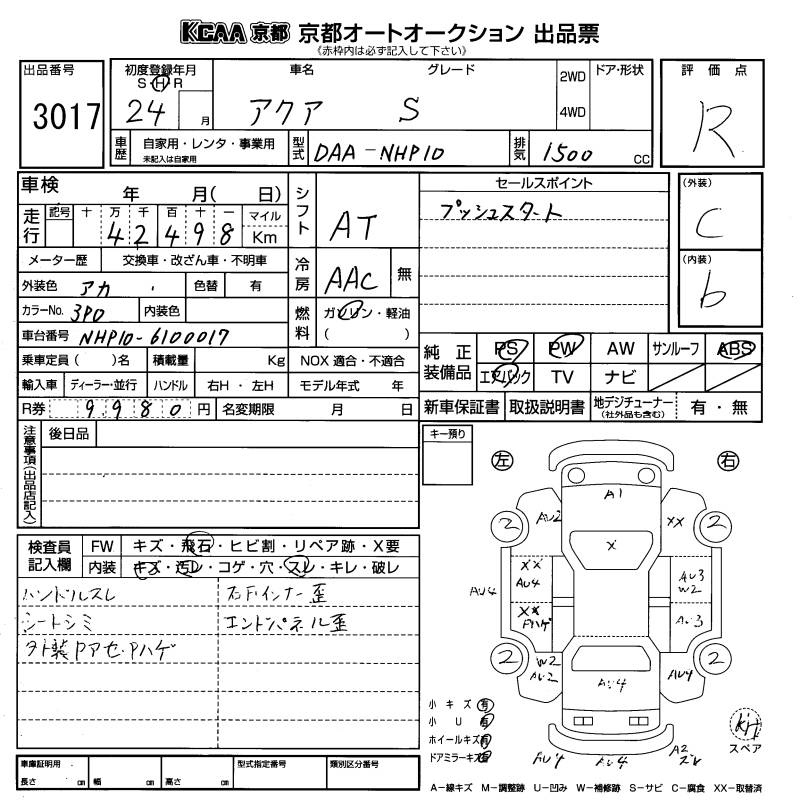 KCAA 京都 京都オートオークション 出品票
《赤枠内は必ず記入して下さい》
出品番号 初度登録年月 車名 グレード 2WD ドア・形状 評価点
S・H・R
3017 24 月 アクア S 4WD R
車歴 自家用・レンタ・事業用 型式 DAA-NHP10 排気 1500 CC
未記入は自家用
車検 年 月( 日) シフト AT セールスポイント (外装) C
走行 記号 十 万 千 百 十 一 マイル プッシュスタート
4 2 4 9 8 Km
メーター歴 交換車・改ざん車・不明車 冷房 AAC 無 (内装) b
外装色 アカ 色替 有
カラーNo. 3P0 内装色 燃料 ガソリン・軽油
( )
車台番号 NHP10-6100017
乗車定員( )名 積載量 Kg NOX 適合・不適合 純正装備品 PS PW AW サンルーフ ABS
輸入車 ディーラー・並行 ハンドル 右H・左H モデル年式 年 エアバック TV ナビ
R券 9980円 名変期限 月 日 新車保証書 取扱説明書 地デジチューナー 有・無
(社外品も含む)
注意事項(出品店記入) 後日品 キー預り
左 右
A1
AU2 XX
2 2
X
XX
AU4 AU4 AU3
W2
XX
Fハゲ AU3
2 2
W2
AU2 AU4 AU4
検査員記入欄 FW キズ・飛石・ヒビ割・リペア跡・X要
内装 キズ・汚レ・コゲ・穴・スレ・キレ・破レ
ハンドルスレ 右Fインナー歪
シートシミ エンドパネル歪
外装Pアセ・Pハゲ
小キズ 有
小U 有
ホイールキズ 有
ドアミラーキズ 有
AU4 AU4 A2
スペア
車庫証明用 型式指定番号 類別区分番号
長さ cm 幅 cm 高さ cm
A-線キズ M-調整跡 U-凹み W-補修跡 S-サビ C-腐食 XX-取替済